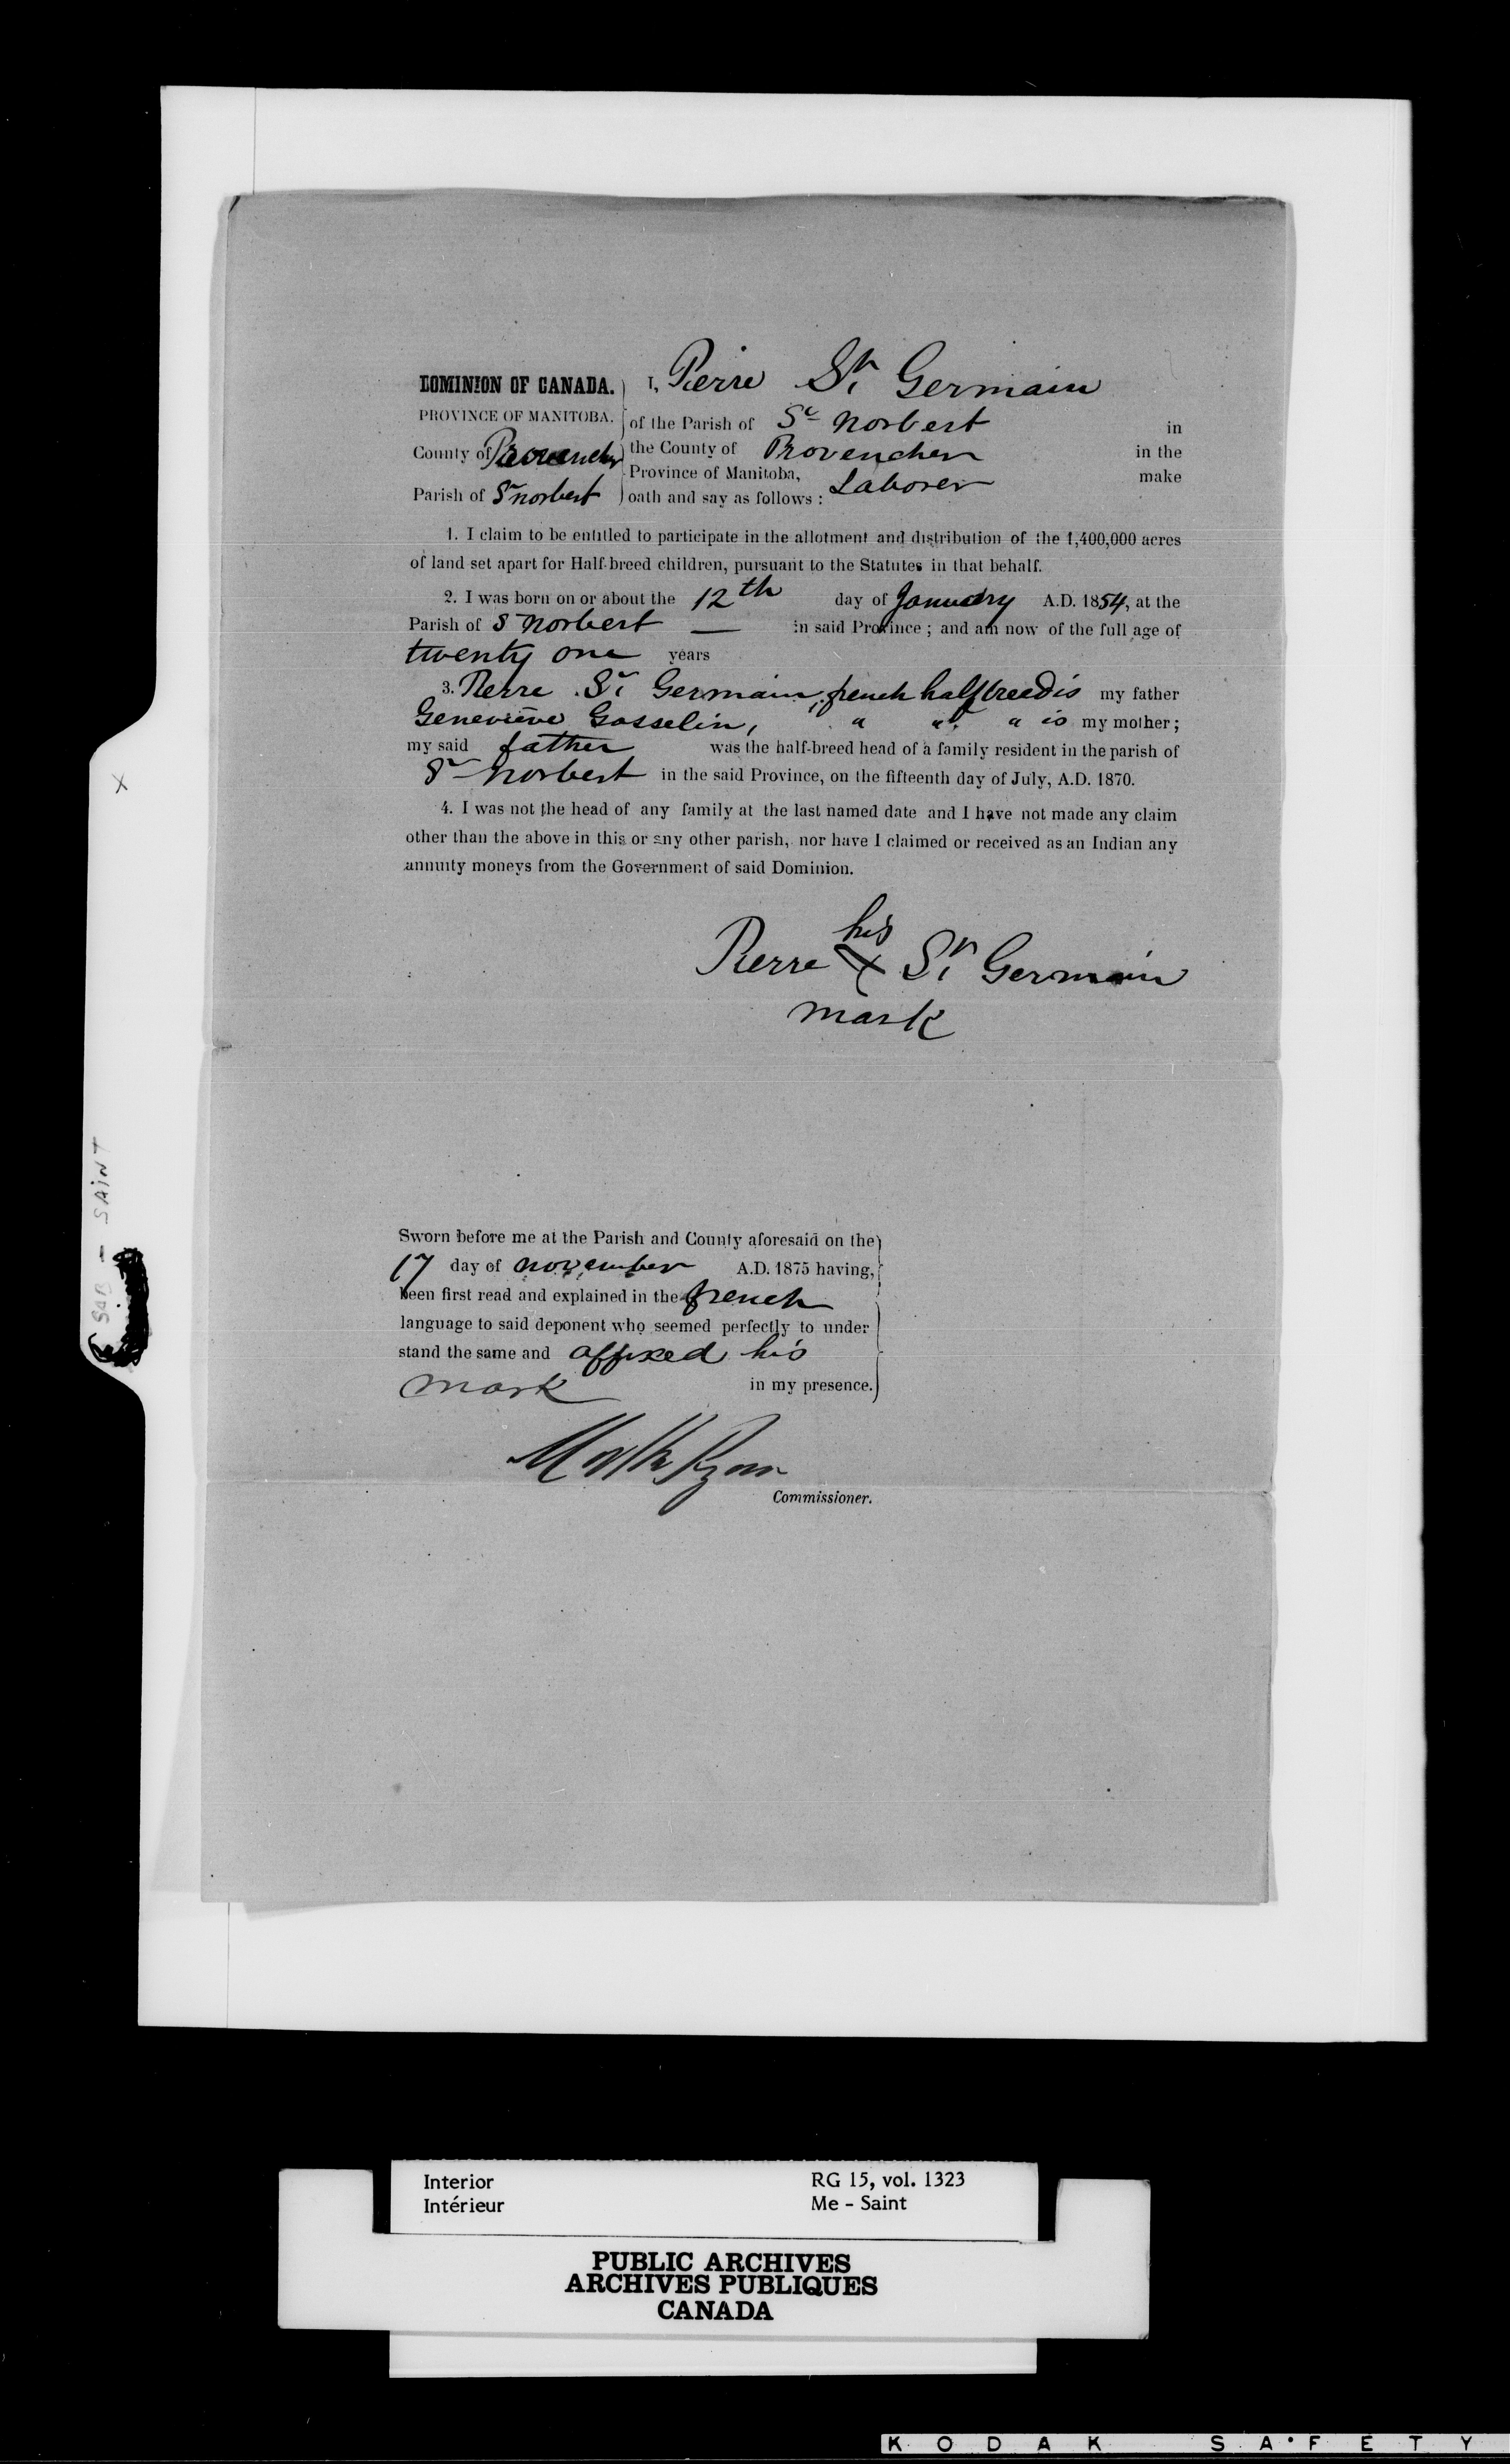 DOMINION OF CANADA. I, Pierre St Germain
PROVINCE OF MANITOBA. of the Parish of St Norbert in
County of Provencher the County of Provencher in the
Province of Manitoba, Laborer make
Parish of St norbert oath and say as follows:
1. I claim to be entitled to participate in the allotment and distribution of the 1,400,000 acres
of land set apart for Half-breed children, pursuant to the Statutes in that behalf.
2. I was born on or about the 12th day of January A.D. 1854, at the
Parish of St Norbert — in said Province; and am now of the full age of
twenty one years
3. Pierre St Germain, french halfbreed is my father
Geneviève Gosselin, " " " is my mother;
my said father was the half-breed head of a family resident in the parish of
St Norbert in the said Province, on the fifteenth day of July, A.D. 1870.
4. I was not the head of any family at the last named date and I have not made any claim
other than the above in this or any other parish, nor have I claimed or received as an Indian any
annuity moneys from the Government of said Dominion.
his
Pierre X St Germain
mark
X
SAB - SAINT
Sworn before me at the Parish and County aforesaid on the
17 day of november A.D. 1875 having,
been first read and explained in the french
language to said deponent who seemed perfectly to under
stand the same and affixed his
mark in my presence.
Ryan
Commissioner.
Interior RG 15, vol. 1323
Intérieur Me - Saint
PUBLIC ARCHIVES
ARCHIVES PUBLIQUES
CANADA
KODAK SAFETY